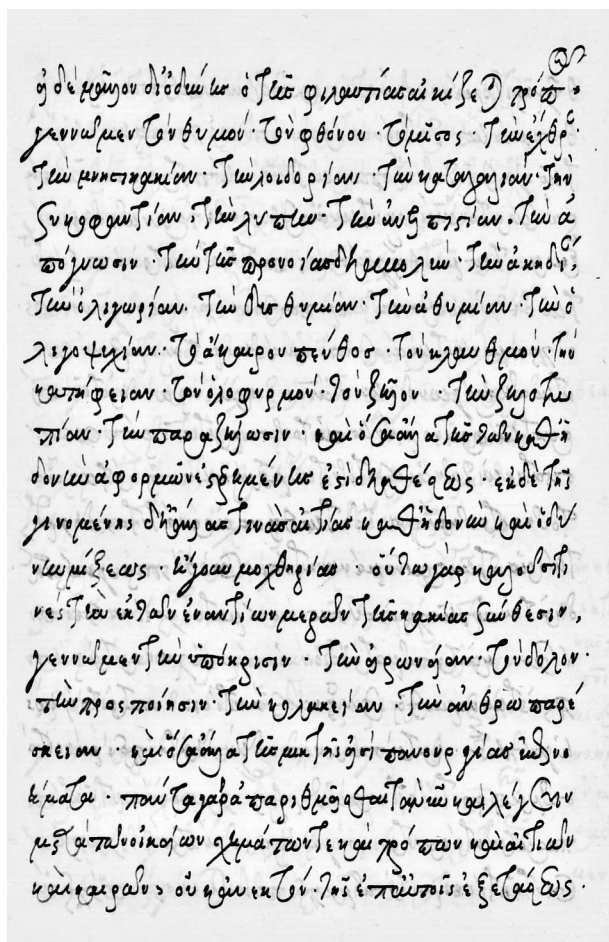 εἰ δὲ μᾶλλον δι' ὀδύνης ὁ τῆς φιλαυτίας αἰκίζεται τρόπος·
γεννῶμεν τὸν θυμόν· τὸν φθόνον· τὸ μῖσος· τὴν ἔχθραν·
τὴν μνησικακίαν· τὴν λοιδορίαν· τὴν καταλαλιάν· τὴν
συκοφαντίαν· τὴν λύπην· τὴν ἀνελπιστίαν· τὴν ἀ
πόγνωσιν· τὴν τῆς προνοίας διαβολήν· τὴν ἀκηδίαν·
τὴν ὀλιγωρίαν· τὴν δυσθυμίαν· τὴν ἀθυμίαν· τὴν ὀ
λιγοψυχίαν· τὸ ἄκαιρον πένθος· τὸν κλαυθμόν· τὴν
κατήφειαν· τὸν ὀλοφυρμόν· τὸν ζῆλον· τὴν ζηλοτυ
πίαν· τὴν παραζήλωσιν· καὶ ὅσα ἄλλα τῆς τῶν καθ' ἡ
δονὴν ἀφορμῶν ἐστερημένης ἐστὶ διαθέσεως· ἐκ δὲ τῆς
γινομένης δι' ἄλλας τινὰς αἰτίας καθ' ἡδονὴν καὶ ὀδύ
νην μίξεως· ἤγουν μοχθηρίας· οὕτω γὰρ καλοῦσί τι
νες τὴν ἐκ τῶν ἐναντίων μερῶν τῆς κακίας σύνθεσιν,
γεννῶμεν τὴν ὑπόκρισιν· τὴν εἰρωνείαν· τὸν δόλον·
τὴν προσποίησιν· τὴν κολακείαν· τὴν ἀνθρωπαρέ
σκειαν· καὶ ὅσα ἄλλα τῆς μικτῆς ἐστὶ πανουργίας ἐπινο
ήματα· πάντα γὰρ ἀπαριθμεῖσθαι τανῦν καὶ λέγειν
μετὰ τῶν οἰκείων σχημάτων τε καὶ τρόπων καὶ αἰτιῶν
καὶ καιρῶν, οὐκ ἀνεκτόν· τῆς ἐπ' αὐτοῖς ἐξετάσεως·